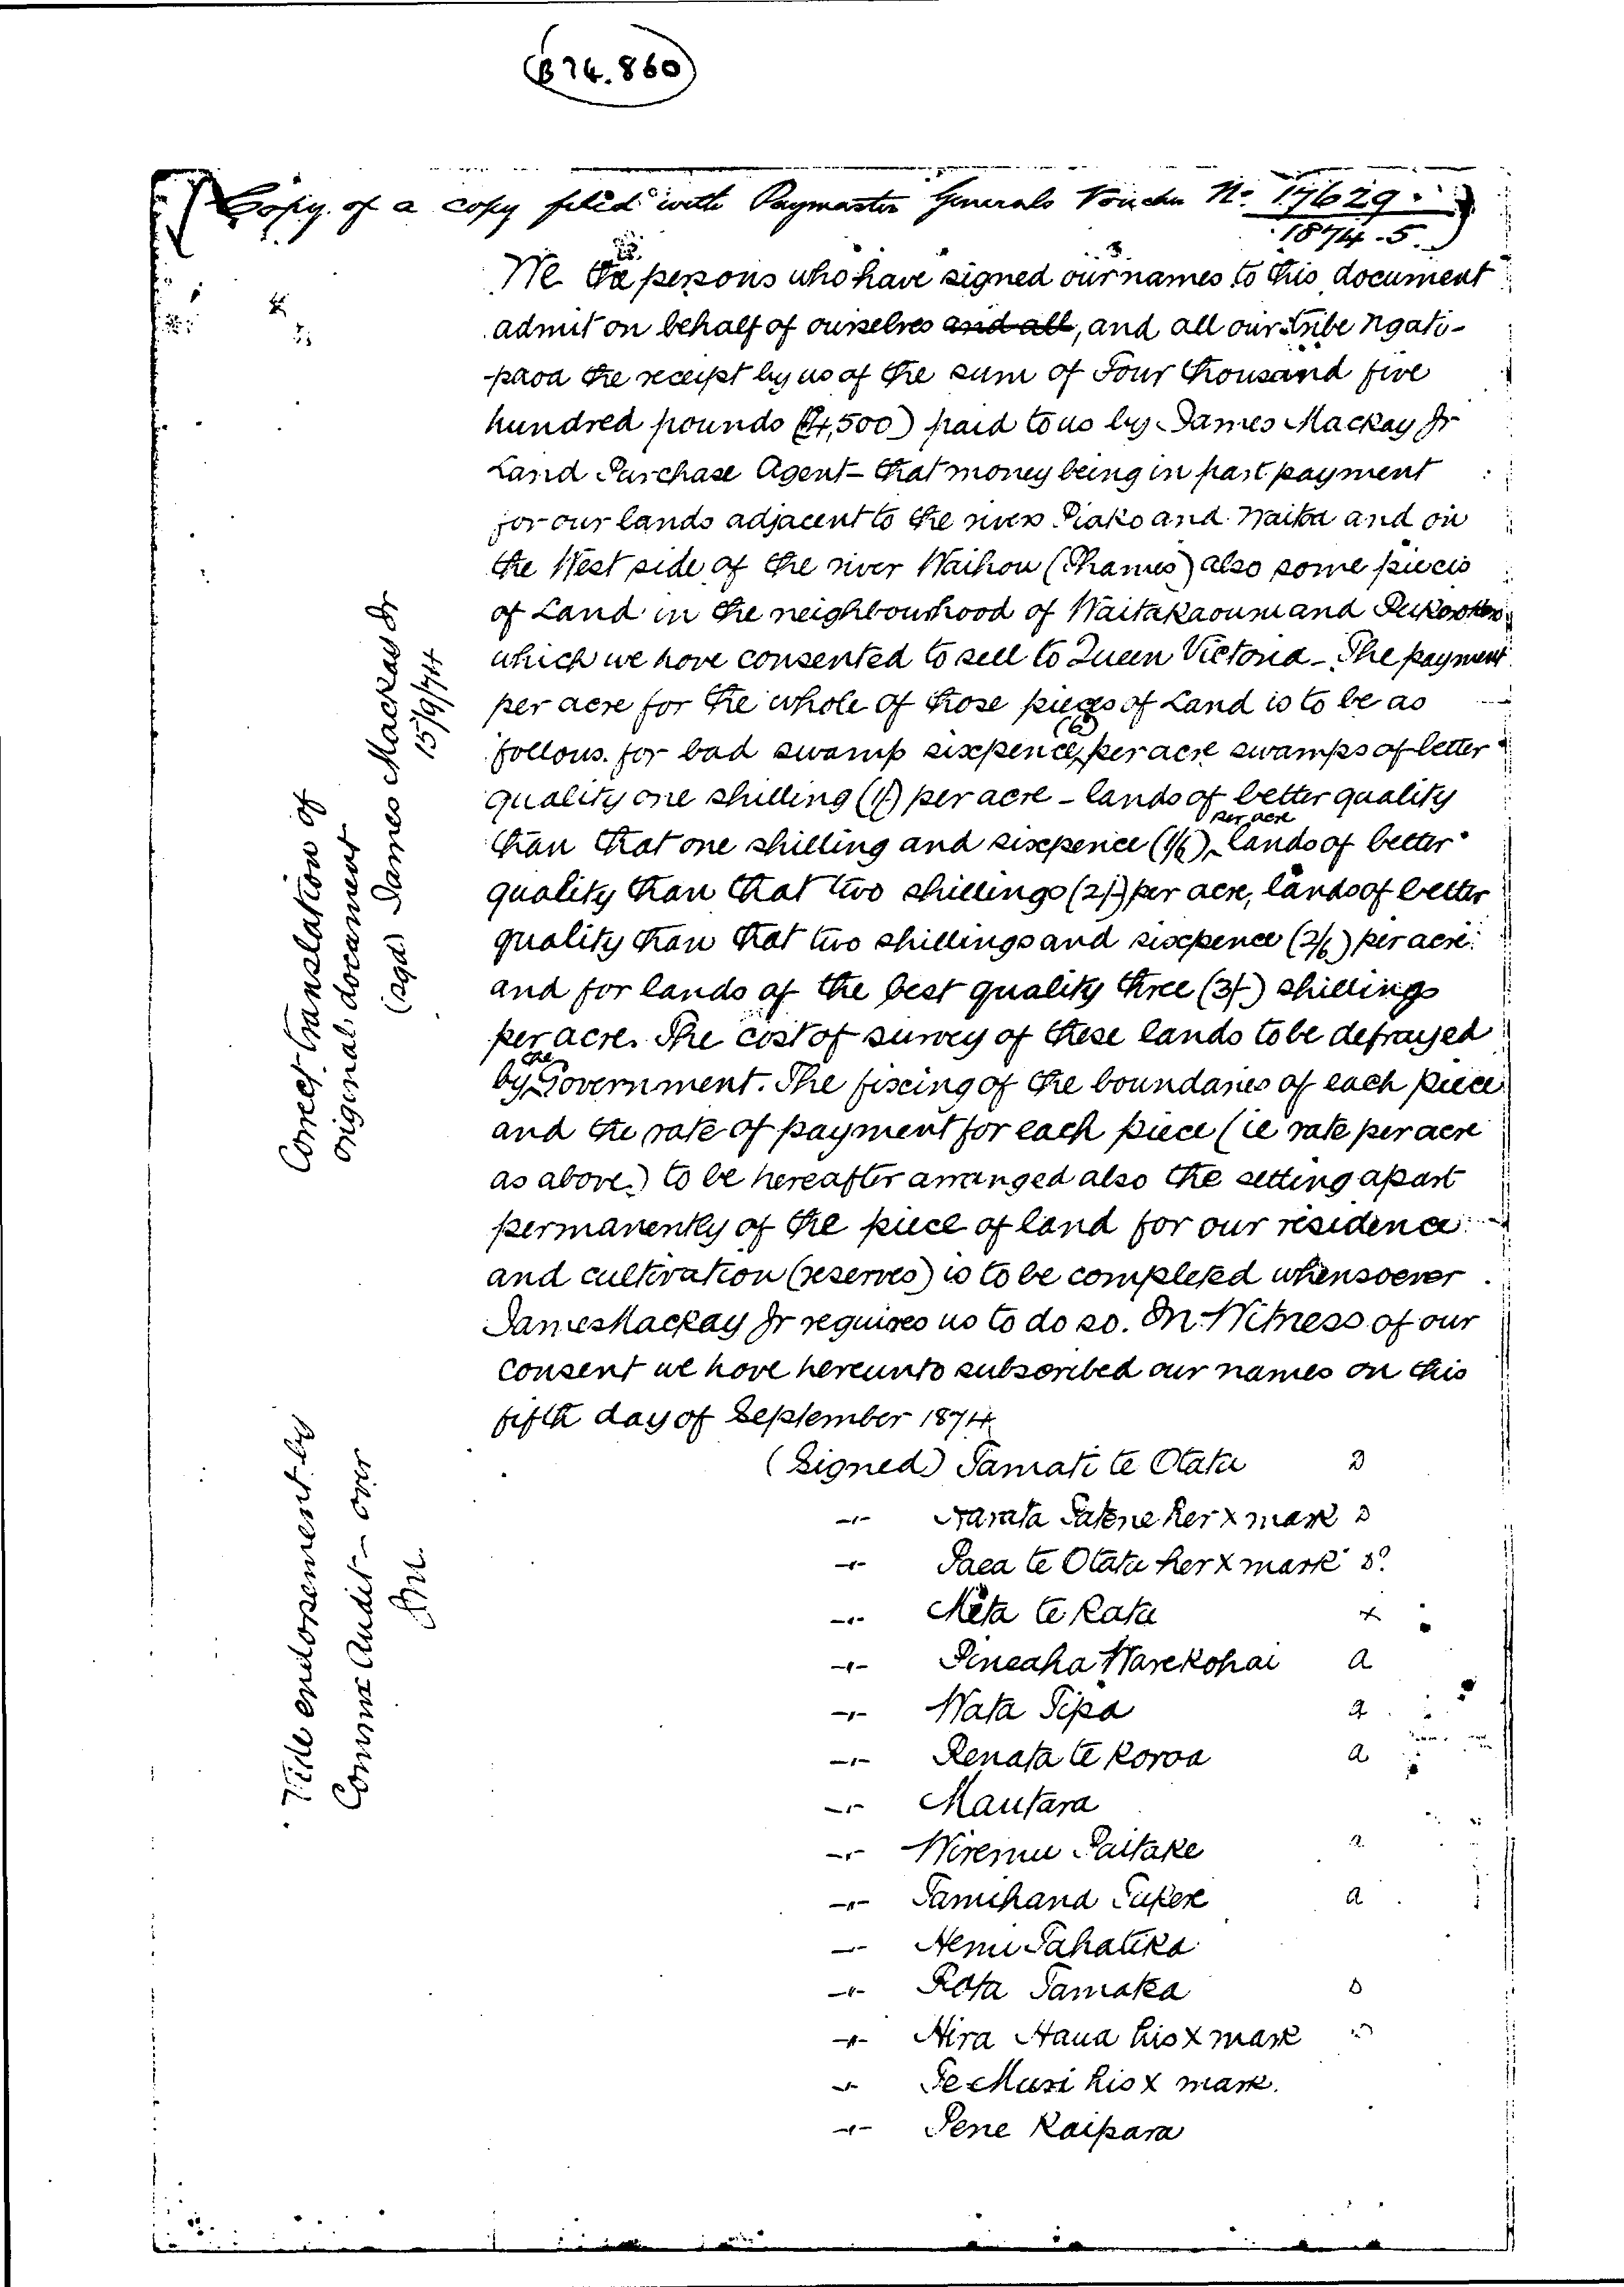 B 74.860
(Copy of a copy filed with Paymaster Generals Voucher No. 17629.)
1874-5.
We the persons who have signed our names to this document
admit on behalf of ourselves and all, and all our tribe Ngati-
-paoa the receipt by us of the sum of Four thousand five
hundred pounds (£4,500) paid to us by James Mackay Jr
Land Purchase Agent - that money being in part payment
for our lands adjacent to the rivers Piako and Waitoa and on
the West side of the river Waihou (Thames) also some pieces
of Land in the neighbourhood of Waitakaouru and Pukorokoro
which we have consented to sell to Queen Victoria - The payment
per acre for the whole of those pieces of Land is to be as
follows. for bad swamp sixpence (6) per acre swamps of better
quality one shilling (1/) per acre - lands of better quality
than that one shilling and sixpence (1/6) per acre lands of better
quality than that two shillings (2/-) per acre, lands of better
quality than that two shillings and sixpence (2/6) per acre.
and for lands of the best quality three (3/-) shillings
per acre. The cost of survey of these lands to be defrayed
by the Government. The fixing of the boundaries of each piece
and the rate of payment for each piece (ie rate per acre
as above) to be hereafter arranged also the setting apart
permanently of the piece of land for our residence
and cultivation (reserves) is to be completed whensoever
James Mackay Jr requires us to do so. In Witness of our
consent we have hereunto subscribed our names on this
fifth day of September 1874
(Signed) Tamati te Otatu
-"- Harata Patene her x mark
-"- Paea te Otatu her x mark
-"- Meta te Ratu x
-"- Pineaha Warekohai a
-"- Wata Tipa a
-"- Renata te Koroa a
-"- Mautara
-"- Wiremu Paitake a
-"- Tamihana Tukere a
-"- Hemi Pahatika
-"- Rota Tamaka
-"- Hira Haua his x mark
-"- Te Muri his x mark.
-"- Pene Kaipara
Correct translation of
original document
(sgd) James Mackay Jr
15/9/74
Vide endorsement by
Commr Audit - over